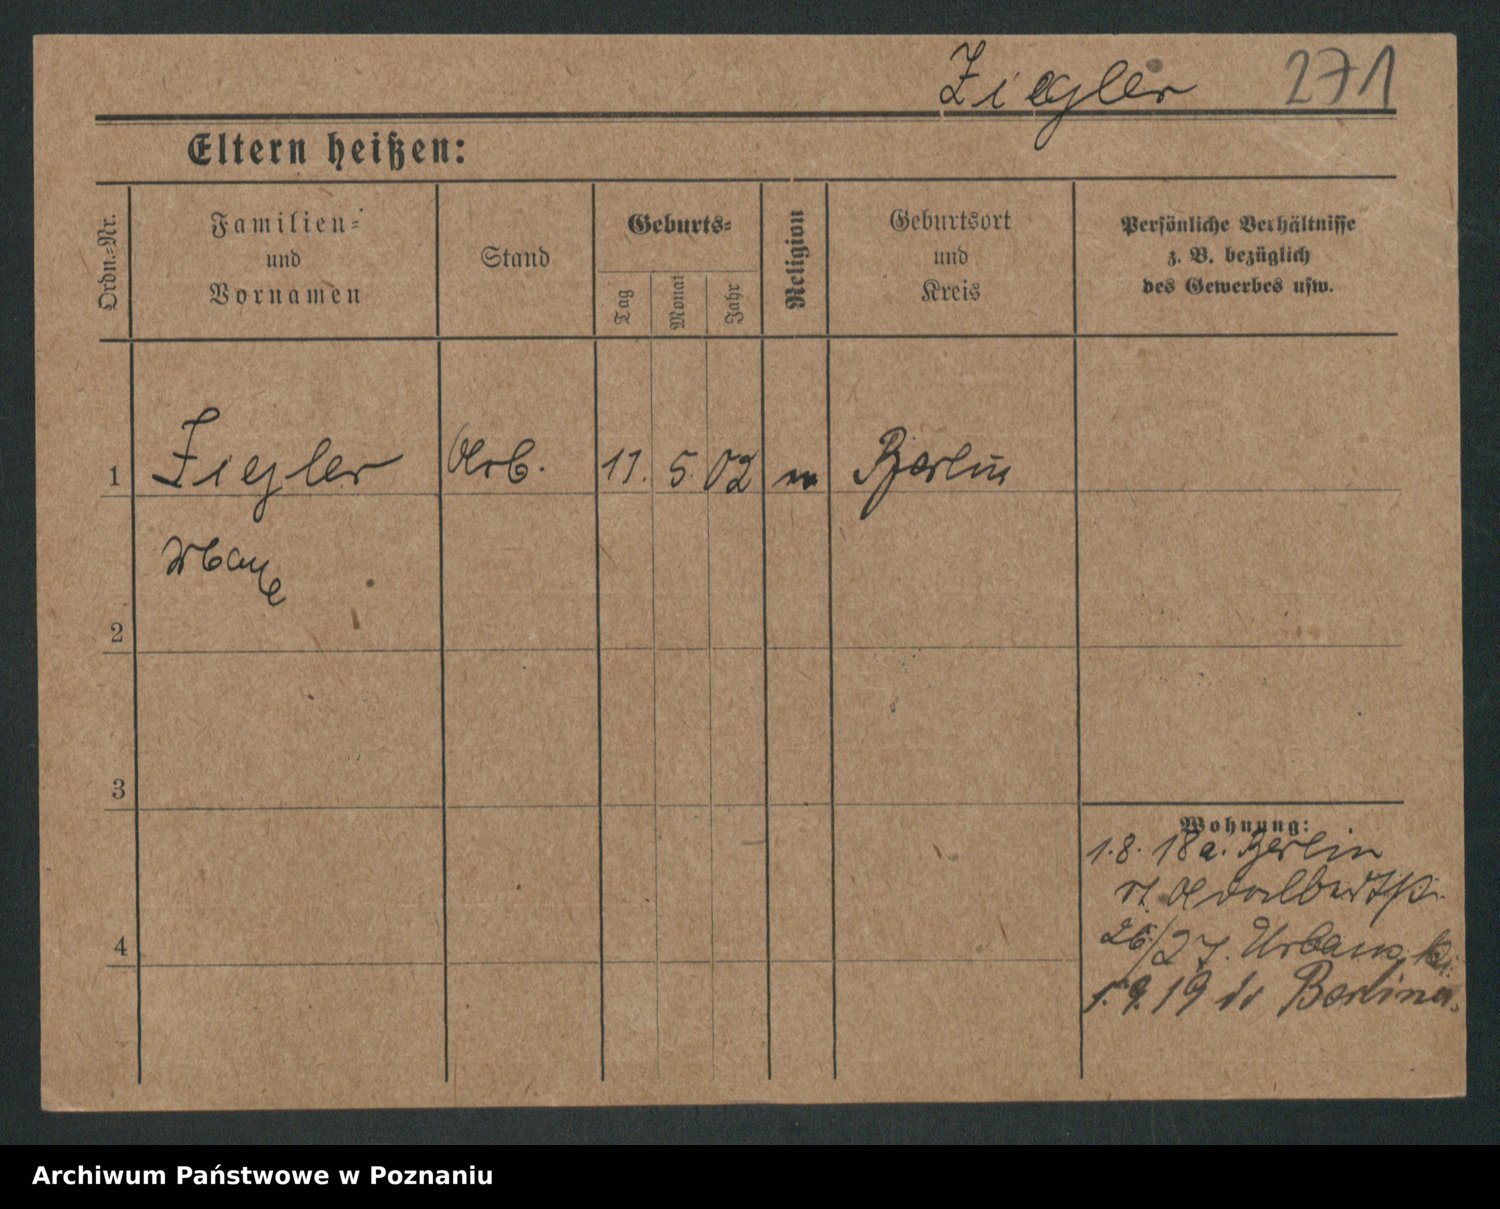 Ziegler 271
Eltern heißen:
Ordn.-Nr.
Familien-
und
Vornamen
Stand
Geburts-
Tag
Monat
Jahr
Religion
Geburtsort
und
Kreis
Persönliche Verhältnisse
z. B. bezüglich
des Gewerbes usw.
1 Ziegler Arb. 11. 5. 02 Berlin
2
3
4
Wohnung:
1.8.18 a. Berlin
26/27. Urban
1.9.19 Berlin
Archiwum Państwowe w Poznaniu